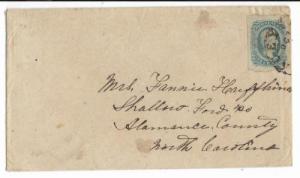 Mrs. Fannie
Shallow Ford PO
Alamance County
North Carolina